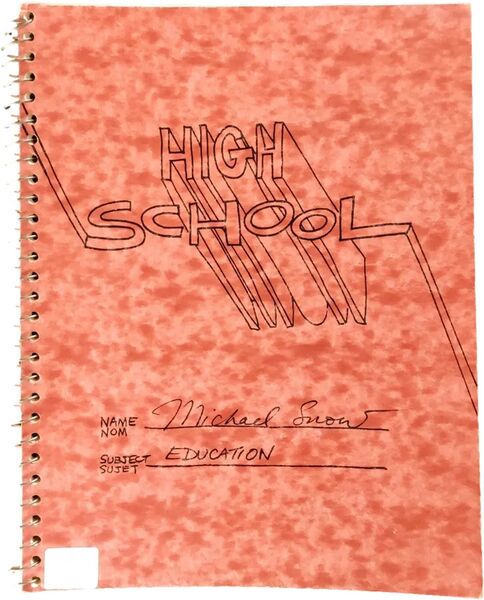 HIGH
SCHOOL
NAME Michael Snow
NOM
SUBJECT EDUCATION
SUJET